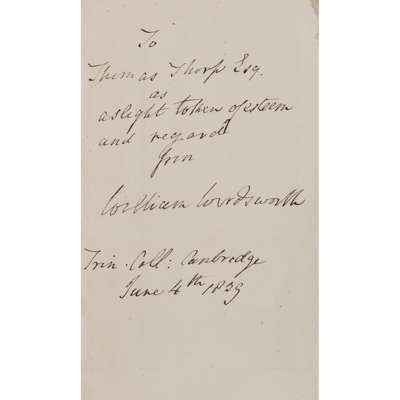 To
Thomas Thorp Esq.
as
a slight token of esteem
and regard
from
William Wordsworth
Trin. Coll: Cambridge
June 4th 1839